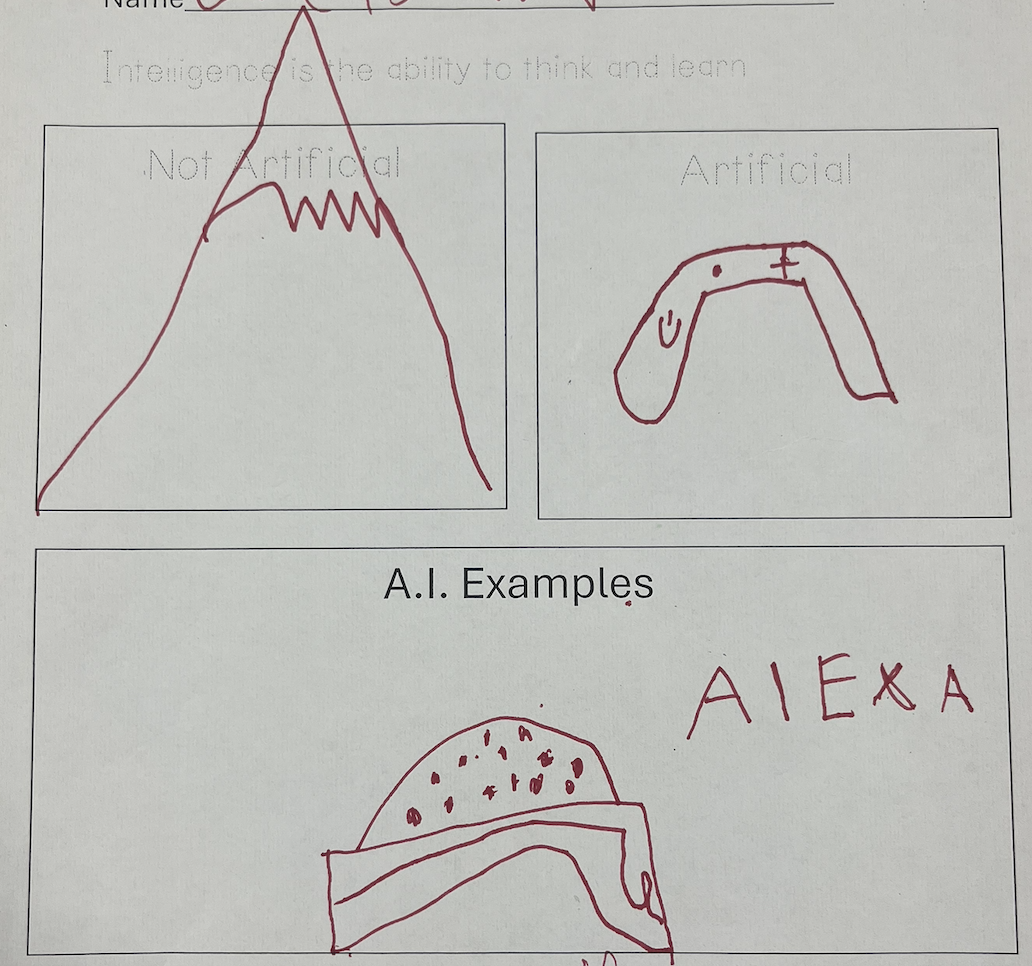 Name
Intelligence is the ability to think and learn
Not Artificial
Artificial
A.I. Examples
AlEXA